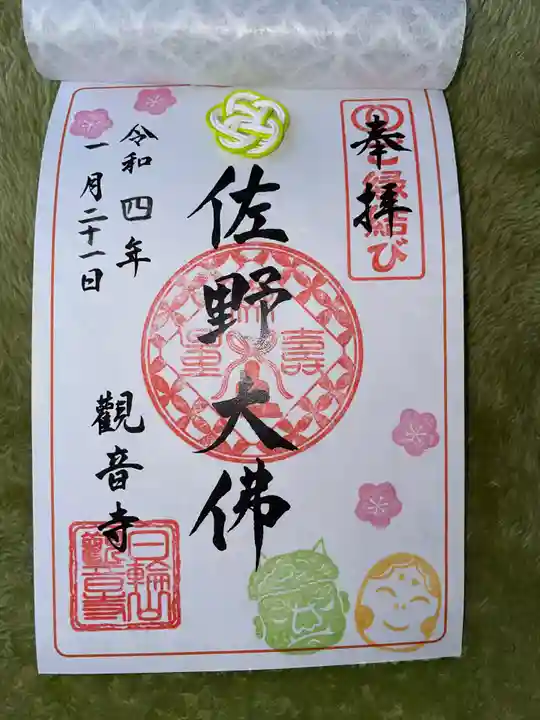 奉拝
ご縁結び
佐野大佛
壽
令和四年
一月二十一日
觀音寺
日輪山
觀音寺